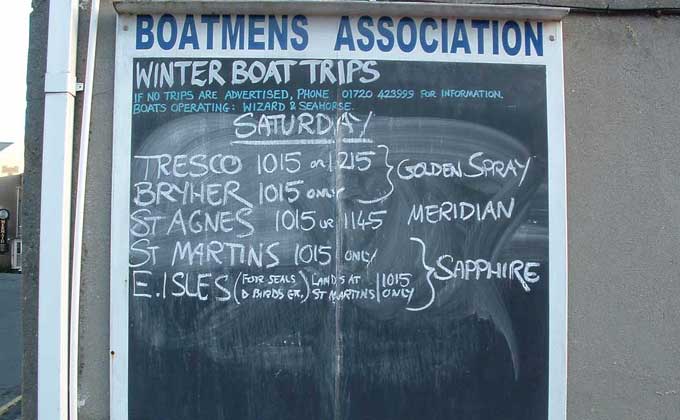 BOATMENS ASSOCIATION
WINTER BOAT TRIPS
IF NO TRIPS ARE ADVERTISED, PHONE 01720 423999 FOR INFORMATION.
BOATS OPERATING: WIZARD & SEAHORSE.
SATURDAY
TRESCO 1015 or 1215
BRYHER 1015 ONLY
GOLDEN SPRAY
ST AGNES 1015 or 1145 MERIDIAN
ST MARTINS 1015 ONLY
SAPPHIRE
E. ISLES (FOR SEALS LANDS AT 1015
& BIRDS ETC.) ST MARTINS ONLY